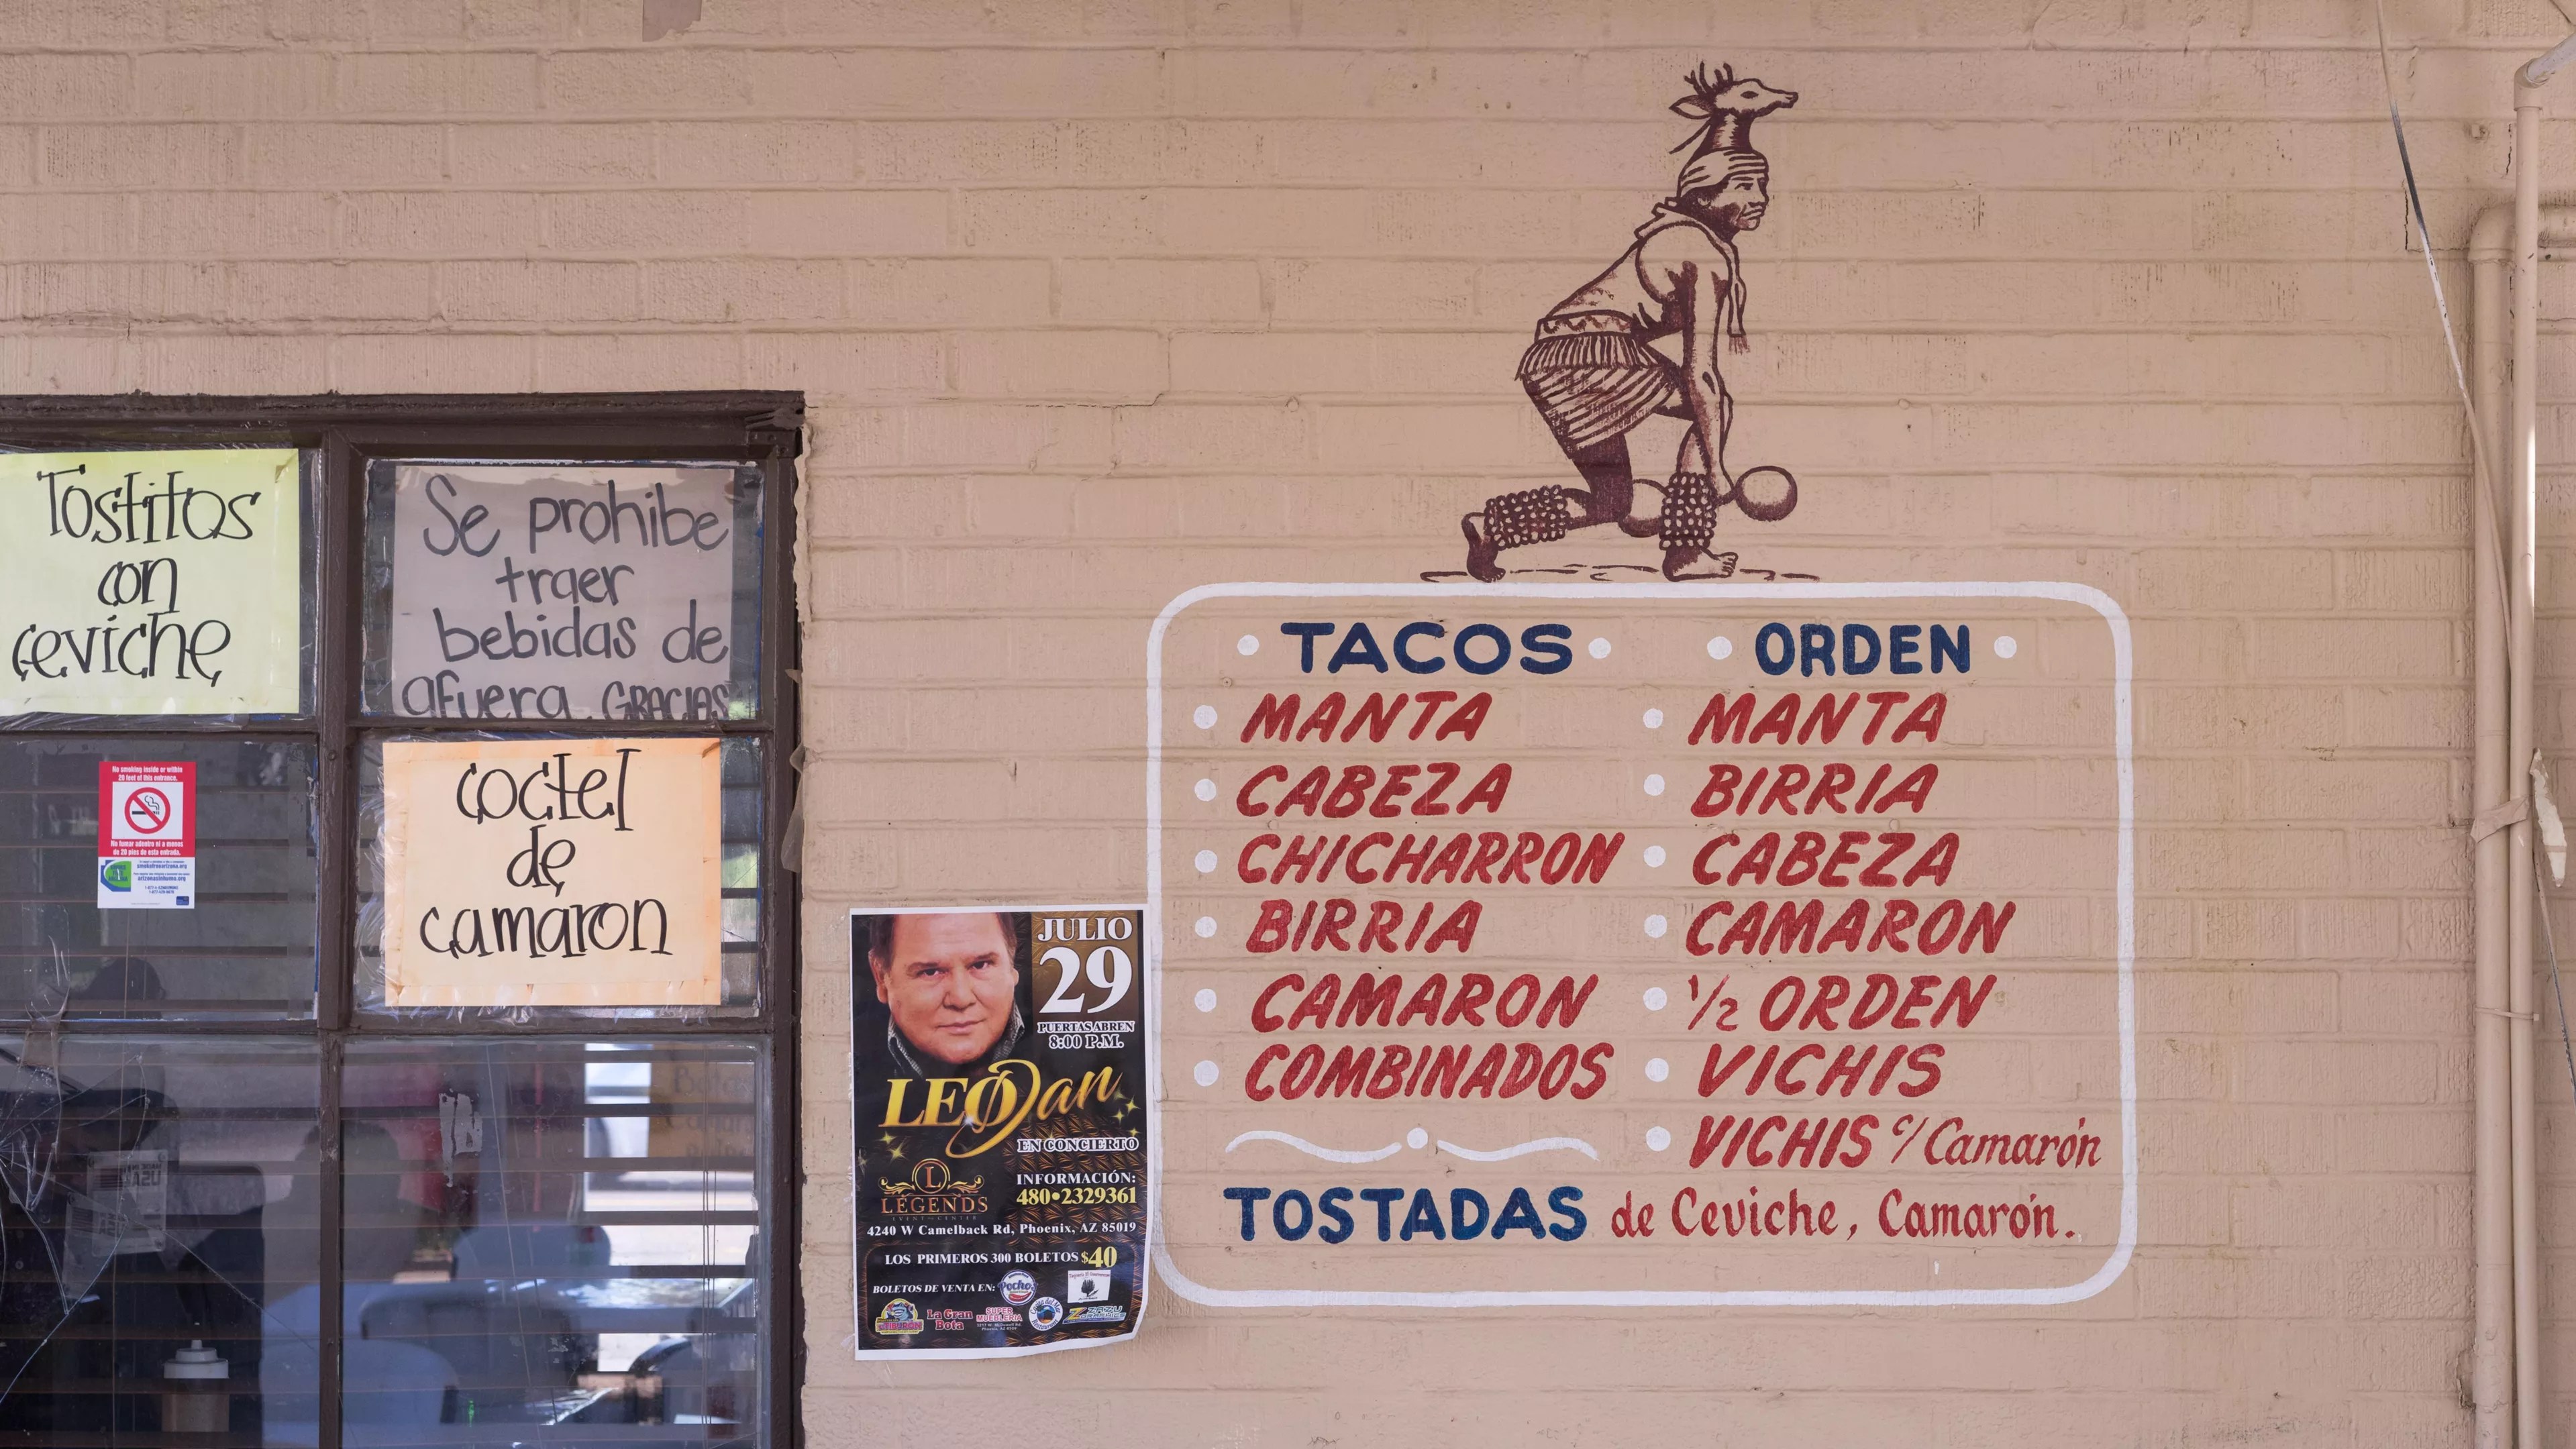 Tostitos
con
ceviche
Se prohibe
traer
bebidas de
afuera. GRACIAS
No smoking inside or within
20 feet of this entrance.
No fumar adentro ni a menos
de 20 pies de esta entrada.
smokefreearizona.org
arizonasinhumo.org
coctel
de
camaron
JULIO
29
PUERTAS ABREN
8:00 P.M.
LEO Dan
EN CONCIERTO
L
LEGENDS
EVENT CENTER
INFORMACIÓN:
480•2329361
4240 W Camelback Rd, Phoenix, AZ 85019
LOS PRIMEROS 300 BOLETOS $40
BOLETOS DE VENTA EN:
Pocho's
La Gran
Bota
SUPER
MUEBLERIA
TACOS
MANTA
CABEZA
CHICHARRON
BIRRIA
CAMARON
COMBINADOS
ORDEN
MANTA
BIRRIA
CABEZA
CAMARON
1/2 ORDEN
VICHIS
VICHIS c/ Camarón
TOSTADAS de Ceviche, Camarón.